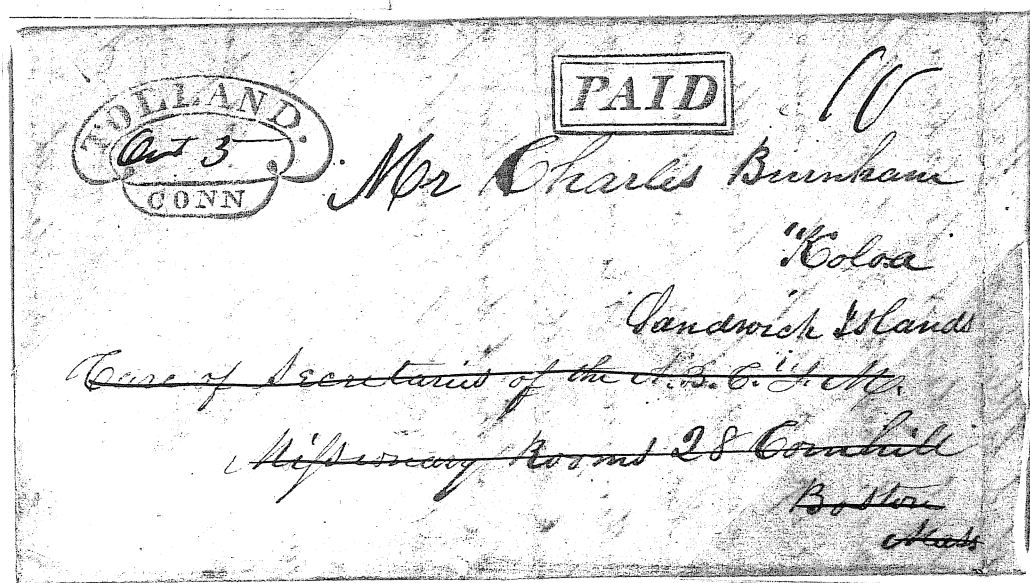 TOLLAND.
Oct 3
CONN
PAID
10
Mr Charles Burnham
"Koloa
Sandwich Islands
Care of Secretaries of the A.B.C.F.M.
Missionary Rooms 28 Cornhill
Boston
Mass